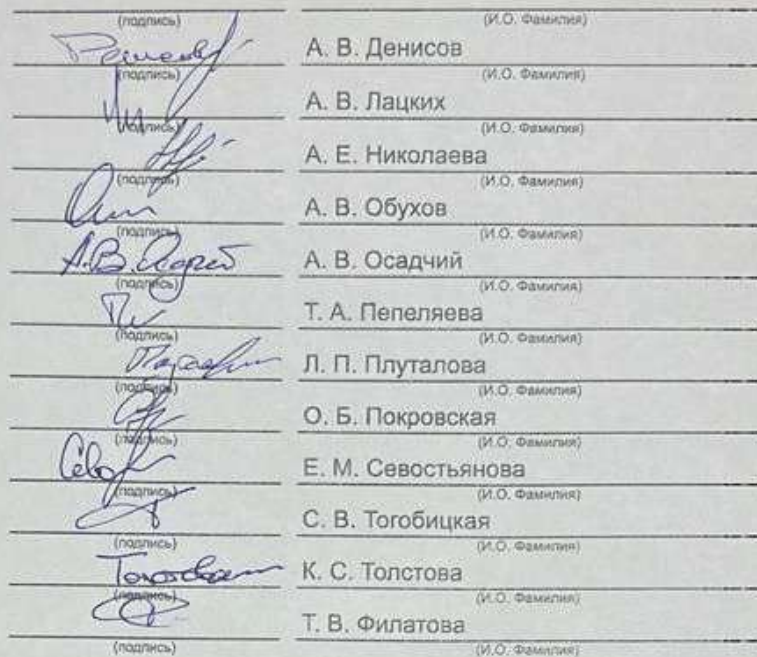 (подпись) (И.О. Фамилия)
А. В. Денисов
(подпись) (И.О. Фамилия)
А. В. Лацких
(подпись) (И.О. Фамилия)
А. Е. Николаева
(подпись) (И.О. Фамилия)
А. В. Обухов
(подпись) (И.О. Фамилия)
А.В. А. В. Осадчий
(подпись) (И.О. Фамилия)
Т. А. Пепеляева
(подпись) (И.О. Фамилия)
Л. П. Плуталова
(подпись) (И.О. Фамилия)
О. Б. Покровская
(подпись) (И.О. Фамилия)
Е. М. Севостьянова
(подпись) (И.О. Фамилия)
С. В. Тогобицкая
(подпись) (И.О. Фамилия)
К. С. Толстова
(подпись) (И.О. Фамилия)
Т. В. Филатова
(подпись) (И.О. Фамилия)